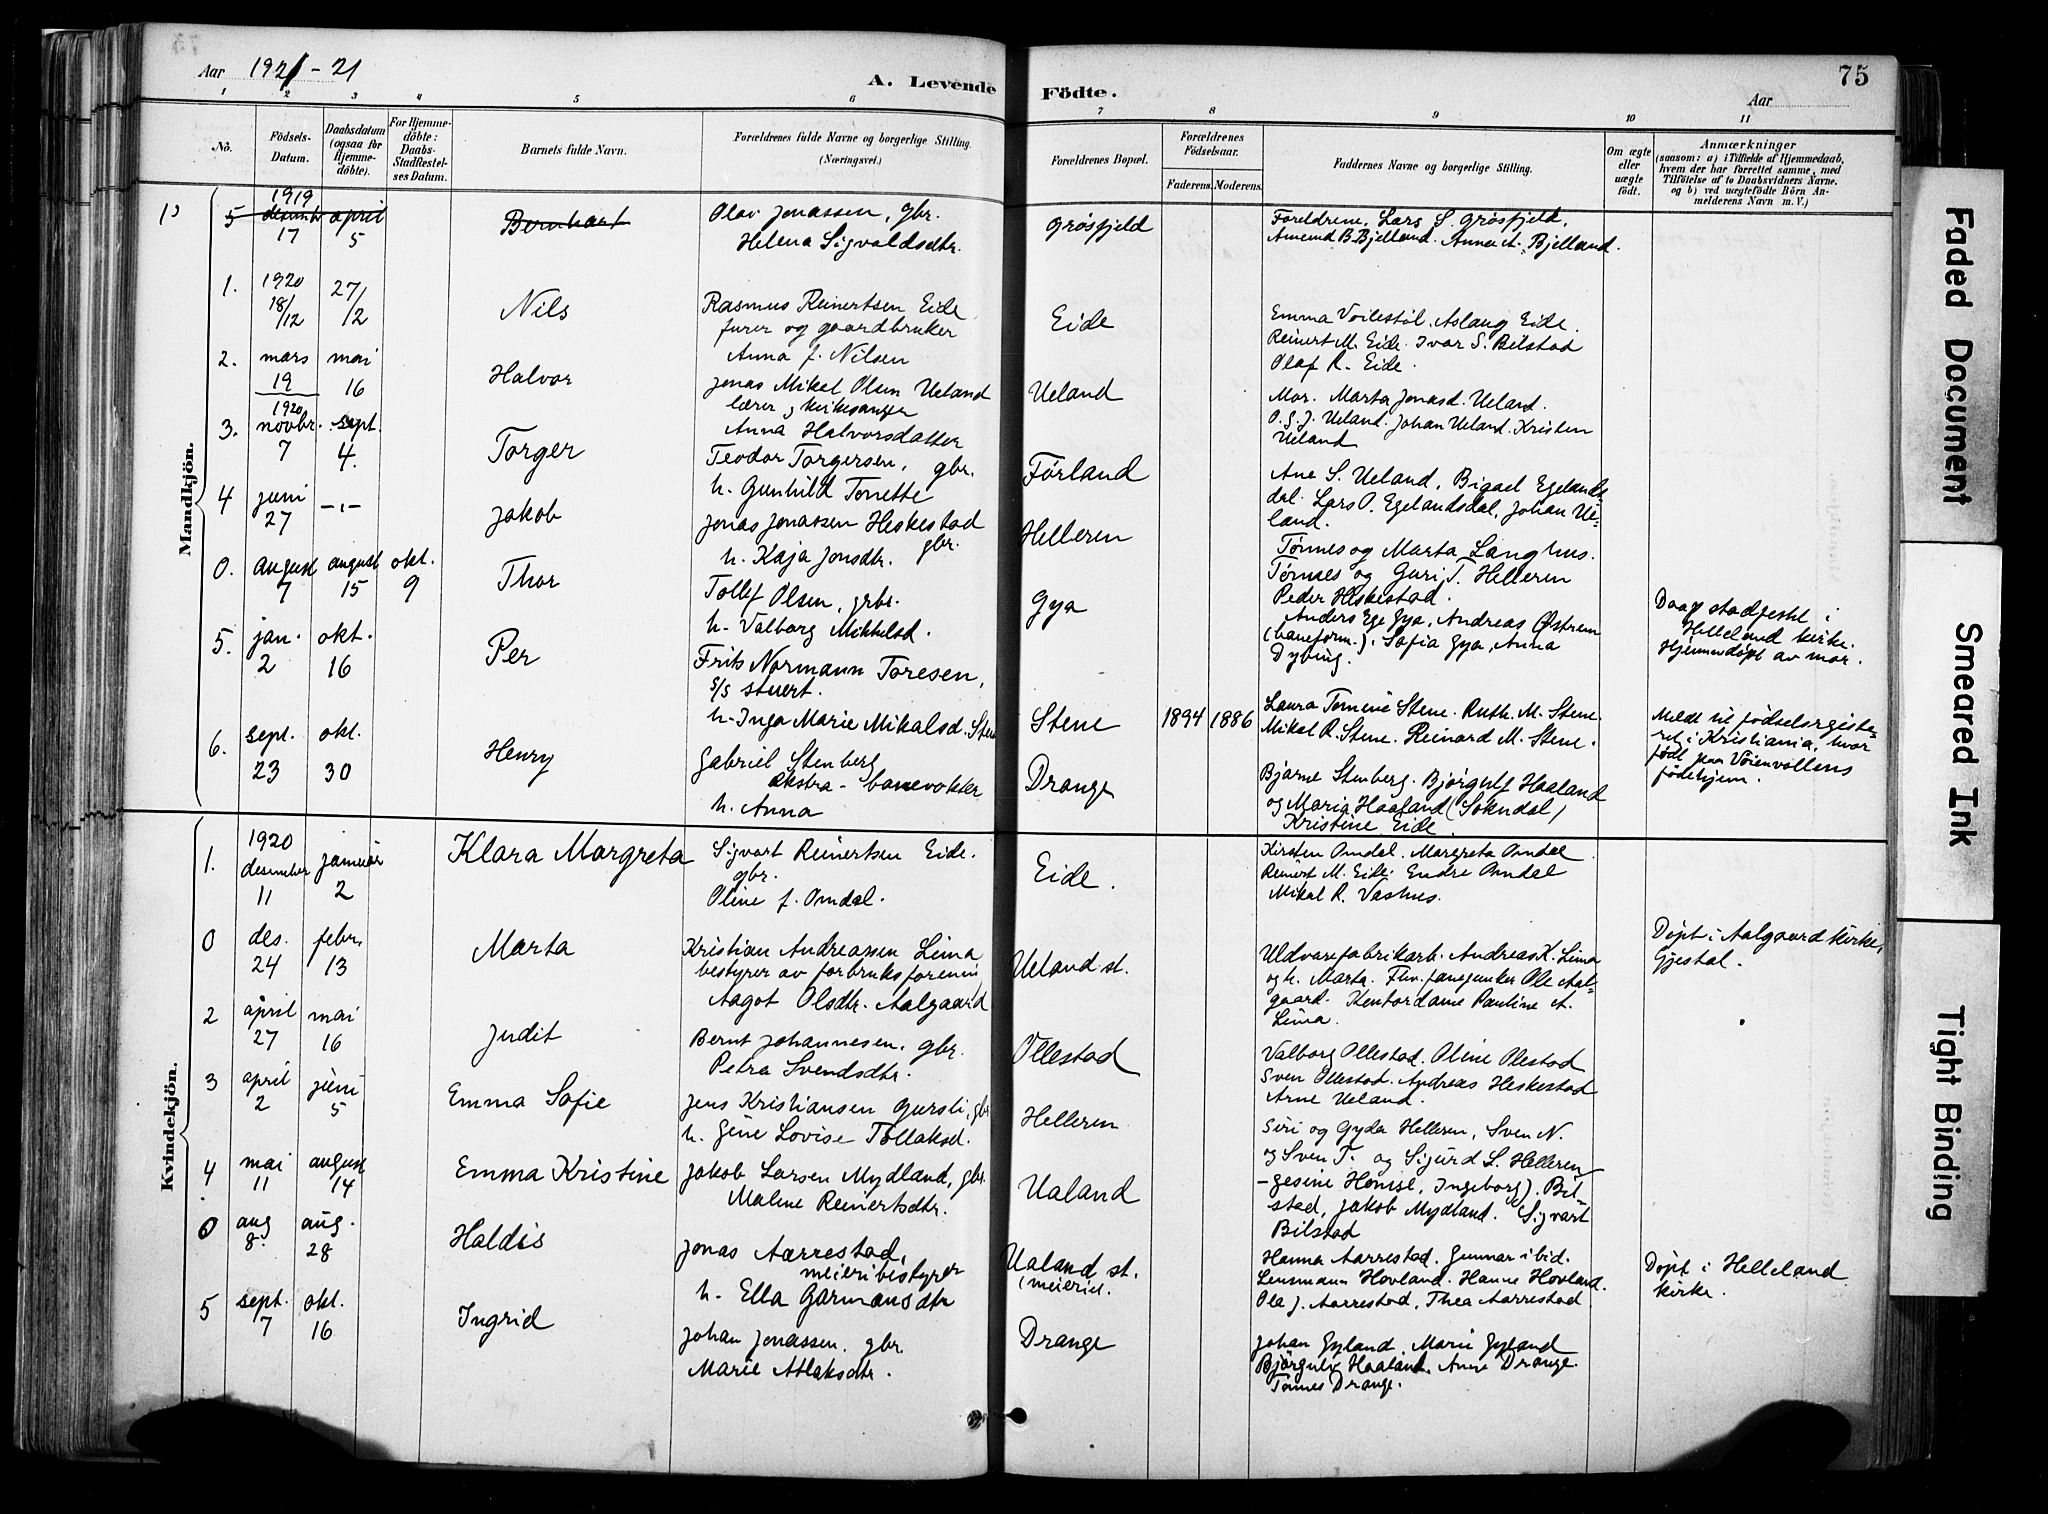 Aar 1921 - 21
A. Levende Fødte.
75
Aar
1 2 3 4 5 6 7 8 9 10 11
No.
Födsels-Datum.
Daabsdatum (ogsaa for Hjemme-döbte).
For Hjemme-döbte: Daabs-Stadfæstel-ses Datum.
Barnets fulde Navn.
Forældrenes fulde Navne og borgerlige Stilling. (Næringsvei.)
Forældrenes Bopæl.
Forældrenes Födselsaar.
Faderens.
Moderens.
Faddernes Navne og borgerlige Stilling.
Om ægte eller uægte födt.
Anmærkninger
(saasom: a) i Tilfælde af Hjemmedaab,
hvem der har forrettet samme, med
Tilföielse af to Daabsvidners Navne.
og b) ved uægtefödte Börn An-
melderens Navn m. V.)
Mandkjön.
5 1919 desember 17 april 5 Bernhart
Olav Jonassen, gbr.
Helena Sigvaldsdtr.
Grøsfjeld
Foreldrene, Lars S. Grøsfjeld,
Amund B. Bjelland. Anna A. Bjelland.
1. 1920 18/12 27/2 Nils
Rasmus Reinertsen Eide
furer og gaardbruker
Anna f. Nilsen
Eide
Emma Voilestøl. Aslaug Eide.
Reinert M. Eide. Ivar S. Bilstad
Olaf R. Eide.
2. mars 19 mai 16 Halvor
Jonas Mikal Olsen Ueland
lærer og kirkesanger
Anna Halvorsdatter
Ueland
Mor. Marta Jonasd. Ueland.
O. G. J. Ueland. Johan Ueland. Kristen
Ueland
3. 1920 novbr. 7 sept. 4. Torger
Teodor Torgersen, gbr.
h. Gunhild Tonette
Førland
Ane S. Ueland, Bigael Egelands-
dal. Lars O. Egelandsdal, Johan Ue-
land.
4 juni 27 -"- Jakob
Jonas Jonassen Heskestad
gbr.
h. Kaja Jonsdtr.
Helleren
Tønnes og Marta Langhus.
Tønnes og Guri T. Helleren
Peder Heskestad.
0. august 7 august 15 okt. 9 Thor
Tollef Olsen, grbr.
h. Valborg Mikkelsd.
Gya
Anders Ege Gya, Andreas Østrem
(baneform.), Sofia Gya, Anna
Dybing.
Daap stadfestet i
Helleland kirke.
Hjemmedøpt av mor.
5. jan. 2 okt. 16 Per
Frits Normann Toresen,
s/s stuert.
h. Inga Marie Mikalsd. Stene
Stene
1894 1886
Laura Tomine Stene. Ruth M. Stene.
Mikal R. Stene. Reinard M. Stene.
Meldt til fødselsregiste-
ret i Kristiania, hvor
født paa Vøienvollens
fødehjem.
6. sept. 23 okt. 30 Henry
Gabriel Stenberg
ekstra-banevokter
h. Anna
Drange
Bjarne Stenberg. Bjørgulf Haaland
og Maria Haaland (Sokndal)
Kristine Eide.
Kvindekjön.
1. 1920 desember 11 januar 2 Klara Margreta
Sigvart Reinertsen Eide.
gbr.
Oline f. Omdal.
Eide.
Kirsten Omdal. Margreta Omdal
Reinert M. Eide. Endre Omdal
Mikal R. Vashus.
0 des. 24 febr. 13 Marta
Kristian Andreassen Lima
bestyrer av forbruksforenin
Aagot Olsdtr. Aalgaard
Ueland st.
Uldvarefabrikarb. Andreas K. Lima
og h. Marta. Fhv. fanejunker Ole Aal-
gaard. Kontordame Pauline A.
Lima.
Døpt i Aalgaard kirke,
Gjestal.
2 april 27 mai 16 Judit
Bernt Johannesen, gbr.
Petra Svendsdtr.
Ollestad
Valborg Ollestad. Oline Olestad
Sven Ollestad. Andreas Heskestad
Arne Ueland.
3 april 2 juni 5 Emma Sofie
Jens Kristiansen Gursli, gbr
h. Gine Lovise Tollaksd.
Helleren
Siri og Gyda Helleren, Sven N.
og Sven T. og Sigurd L. Helleren
4 mai 11 august 14 Emma Kristine
Jakob Larsen Mydland, gbr.
Malene Reinertsdtr.
Ualand
Gesine Ingeborg J. Bil-
stad, Jakob Mydland. Sigvart
Bilstad
0 aug 8. aug. 28 Haldis
Jonas Aarrestad,
meieribestyrer
h. Ella Garmansdtr
Ualand st.
(meieriet.
Hanna Aarrestad. Gunnar ibid.
Lensmann Hovland. Hanne Hovland.
Ola J. Aarrestad, Thea Aarrestad
Døpt i Helleland
kirke.
5 sept. 7 okt. 16 Ingrid
Johan Jonassen, gbr.
Marie Atlaksdtr.
Drange
Johan Gyland. Marie Gyland
Bjørgulv Haaland. Anne Drange
Tønnes Drange.
Faded Document
Smeared Ink
Tight Binding